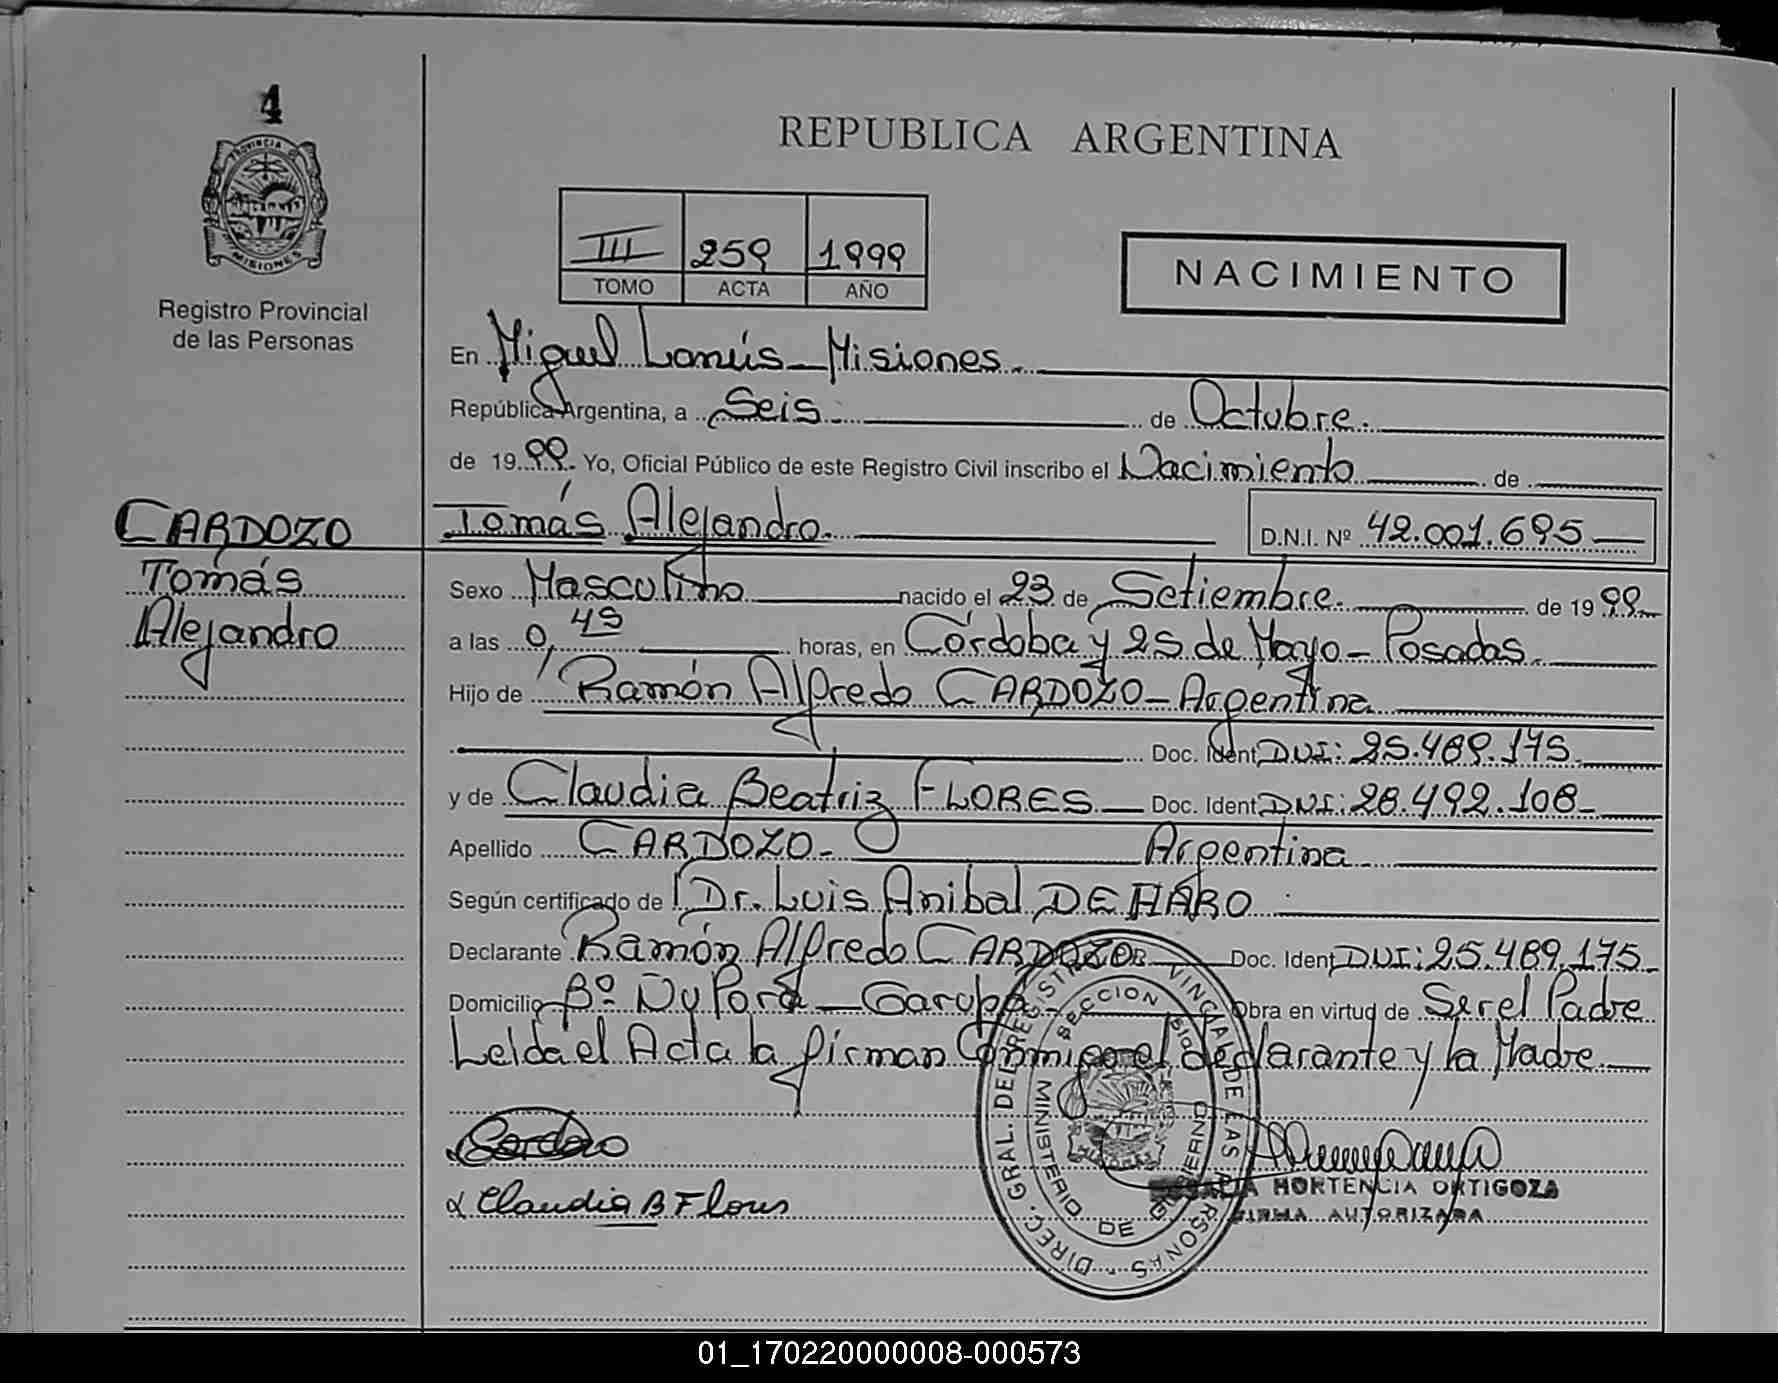 4
PROVINCIA DE
MISIONES
Registro Provincial
de las Personas
REPUBLICA ARGENTINA
III 259 1999
TOMO ACTA AÑO
NACIMIENTO
En Miguel Lanús - Misiones.
República Argentina, a Seis. de Octubre.
de 1999. Yo, Oficial Público de este Registro Civil inscribo el Nacimiento de
CARDOZO
Tomás
Alejandro
Tomás Alejandro. D.N.I. Nº 42.001.695
Sexo Masculino nacido el 23 de Setiembre. de 1999
a las 0,45 horas, en Córdoba y 25 de Mayo - Posadas.
Hijo de Ramón Alfredo CARDOZO - Argentina
Doc. Ident DNI: 25.489.175
y de Claudia Beatriz FLORES Doc. Ident DNI: 28.492.108
Apellido CARDOZO - Argentina
Según certificado de Dr. Luis Anibal DE HARO
Declarante Ramón Alfredo CARDOZO Doc. Ident DNI: 25.489.175
Domicilio Bº Ñu Porá - Garupá Obra en virtud de Ser el Padre
Leída el Acta la firman Conmigo el declarante y la Madre
Cardozo
Claudia B Flores
DIREC. GRAL. DEL REGISTRO PROVINCIAL DE LAS PERSONAS
SECCION
MINISTERIO DE GOBIERNO
MISIONES
HORTENCIA ORTIGOZA
FIRMA AUTORIZADA
01_170220000008-000573